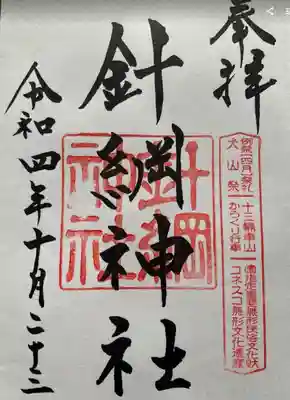 奉拝
例祭(四月)祭礼
犬山祭
十三輌車山
からくり行事
ユネスコ無形文化遺産
針綱神社
針綱神社
令和四年十月二十三